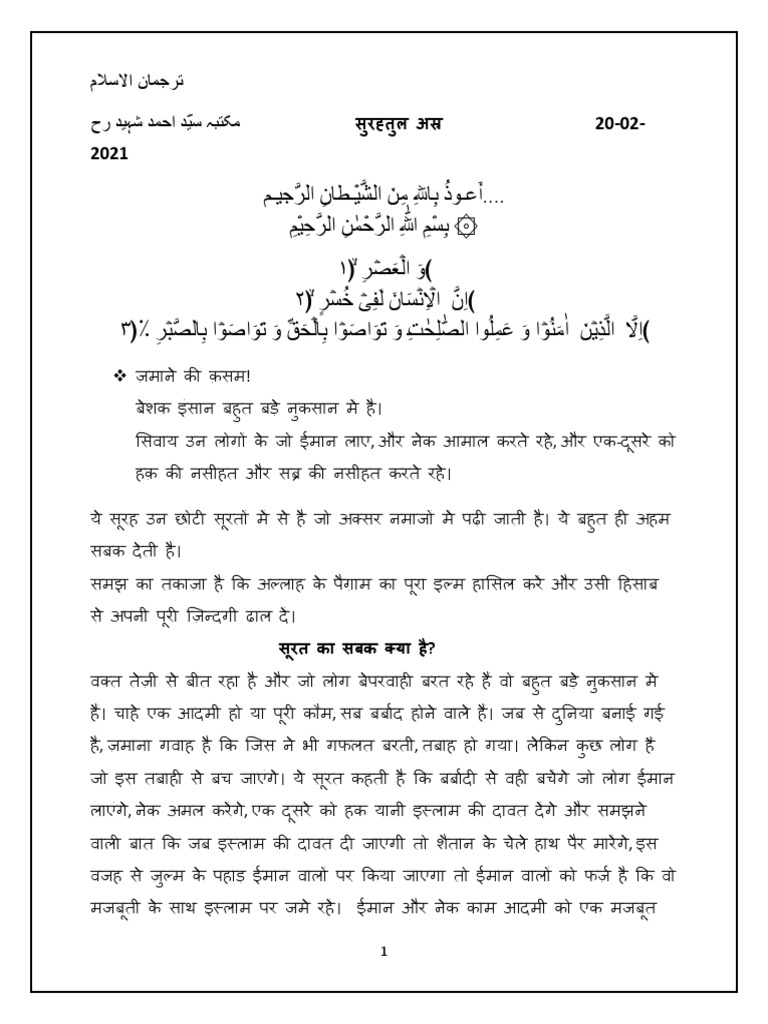 ترجمان الاسلام
مکتبہ سیّد احمد شہید رح सुरहतुल अस्र 20-02-
2021
....أَعـوذُ بِـاللهِ مِنَ الشَّيْـطانِ الرَّجيـم
۞ بِسْمِ اللّٰهِ الرَّحْمٰنِ الرَّحِيْمِ
)وَ الْعَصْرِۙ(۱
)اِنَّ الْاِنْسَانَ لَفِیْ خُسْرٍۙ(۲
)اِلَّا الَّذِیْنَ اٰمَنُوْا وَ عَمِلُوا الصّٰلِحٰتِ وَ تَوَاصَوْا بِالْحَقِّ ۙ وَ تَوَاصَوْا بِالصَّبْرِ ٪(۳
❖ ज़माने की क़सम!
बेशक इंसान बहुत बड़े नुकसान मे है।
सिवाय उन लोगों के जो ईमान लाए, और नेक आमाल करते रहे, और एक-दूसरे को
हक़ की नसीहत और सब्र की नसीहत करते रहे।
ये सूरह उन छोटी सूरतों मे से है जो अक्सर नमाजों मे पढी जाती है। ये बहुत ही अहम
सबक देती है।
समझ का तकाजा है कि अल्लाह के पैग़ाम का पूरा इल्म हासिल करे और उसी हिसाब
से अपनी पूरी ज़िन्दगी ढाल दे।
सूरत का सबक क्या है?
वक्त तेज़ी से बीत रहा है और जो लोग बेपरवाही बरत रहे हैं वो बहुत बड़े नुकसान मे
हैं। चाहे एक आदमी हो या पूरी कौम, सब बर्बाद होने वाले है। जब से दुनिया बनाई गई
है, ज़माना गवाह है कि जिस ने भी गफलत बरती, तबाह हो गया। लेकिन कुछ लोग है
जो इस तबाही से बच जाएंगे। ये सूरत कहती है कि बर्बादी से वही बचेंगे जो लोग ईमान
लाएंगे, नेक अमल करेंगे, एक दूसरे को हक यानी इस्लाम की दावत देंगे और समझने
वाली बात कि जब इस्लाम की दावत दी जाएगी तो शैतान के चेले हाथ पैर मारेंगे, इस
वजह से ज़ुल्म के पहाड़ ईमान वालों पर किया जाएगा तो ईमान वालों को फर्ज़ है कि वो
मजबूती के साथ इस्लाम पर जमे रहे। ईमान और नेक काम आदमी को एक मजबूत
1